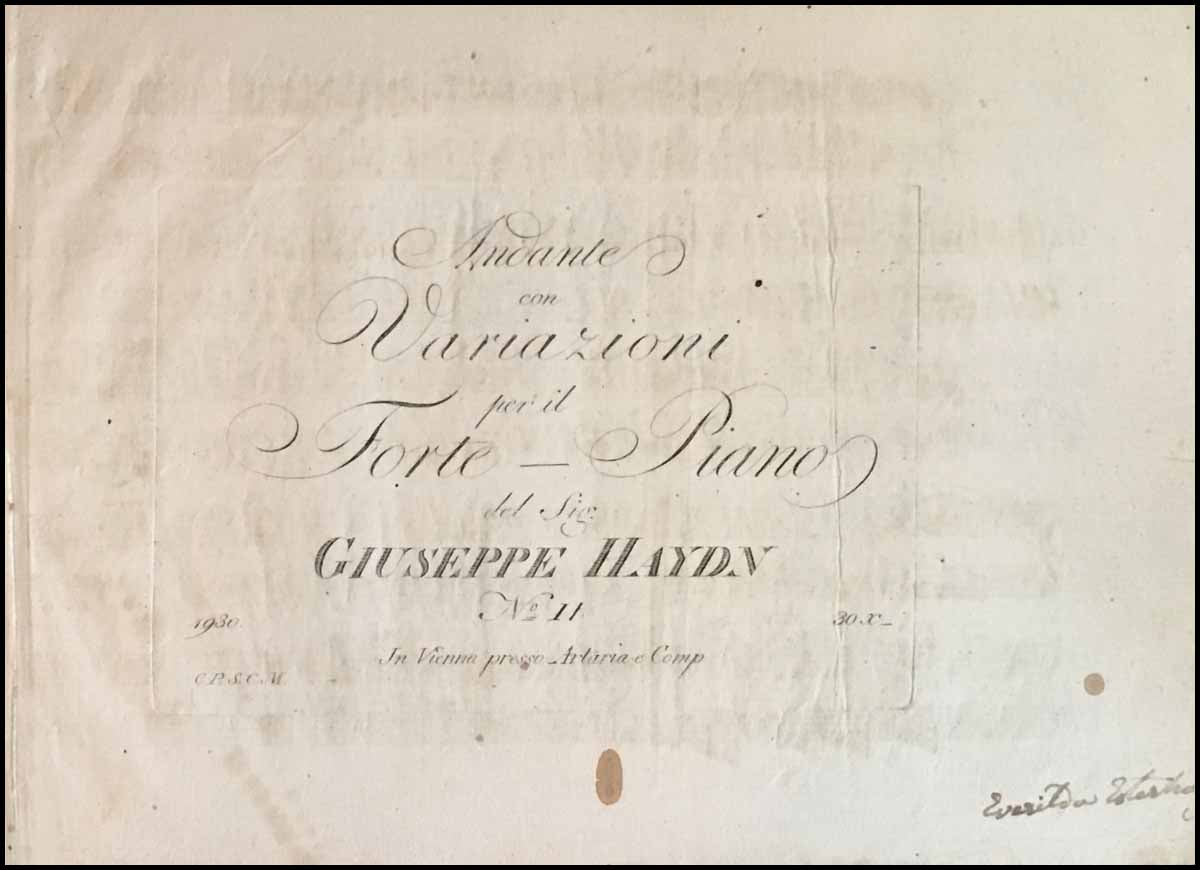 Andante
con
Variazioni
per il
Forte – Piano
del Sig.
GIUSEPPE HAYDN
No. 11.
1930. 30 X –
In Vienna presso Artaria e Comp
C. P. S. C. M.
Everilda